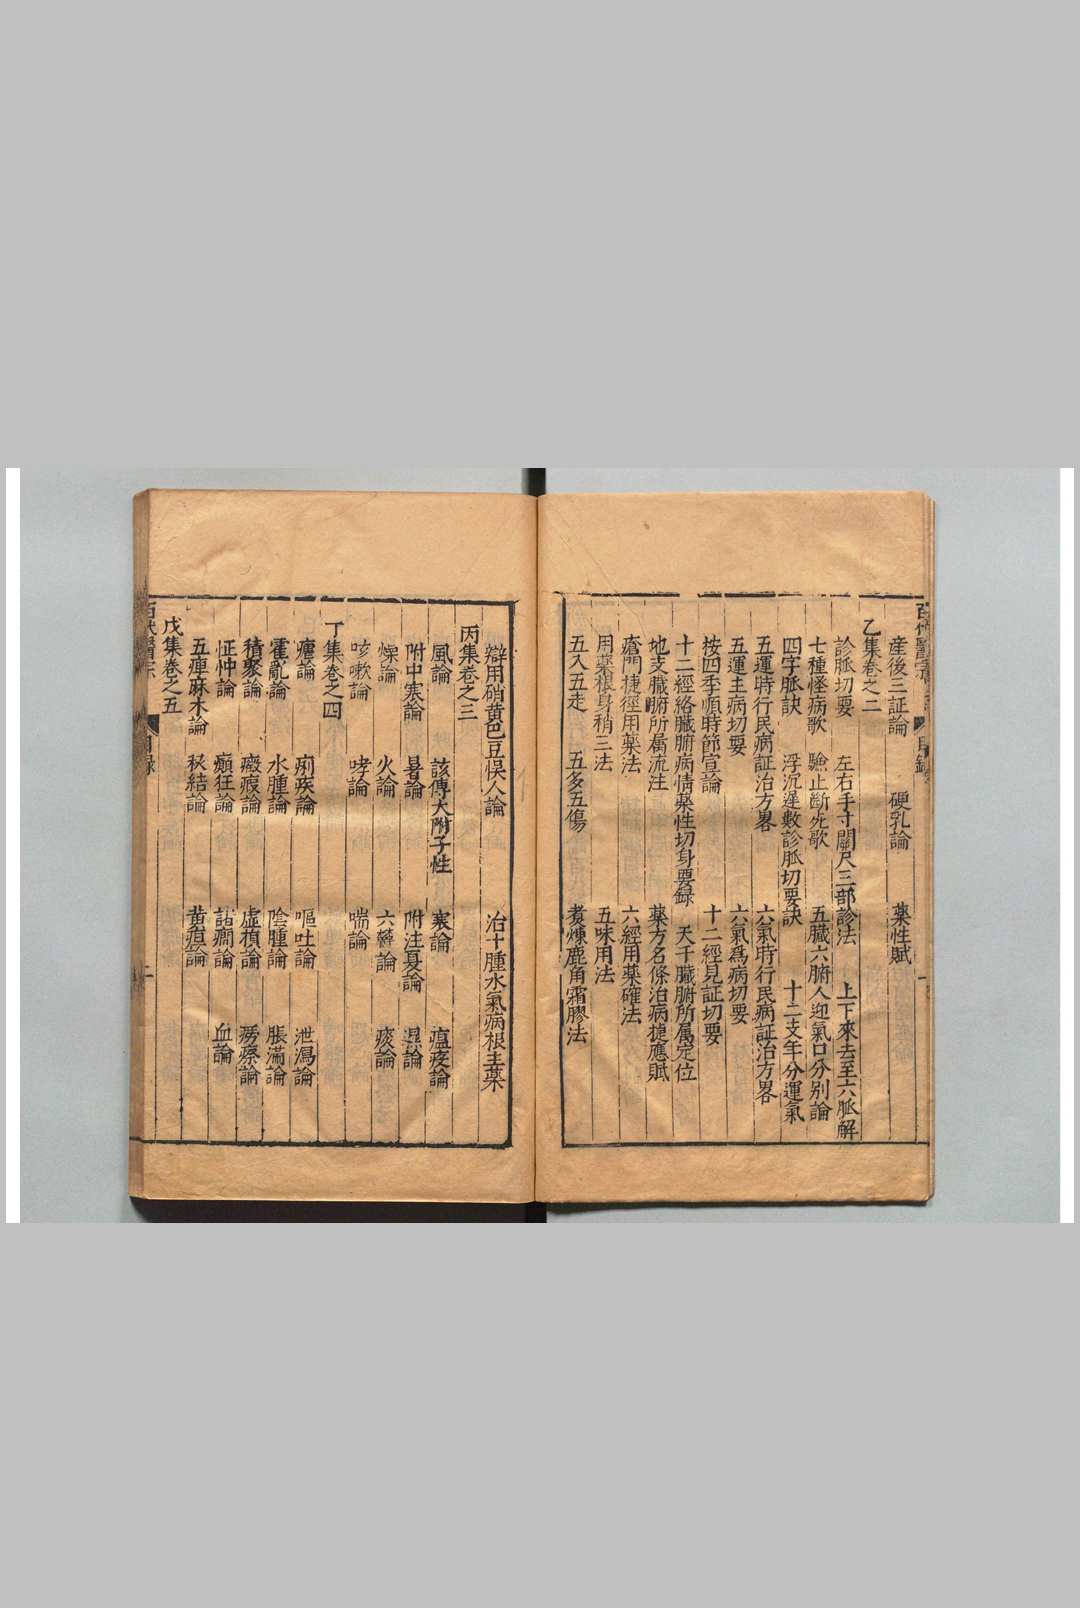 產後三証論 硬乳論 藥性賦
乙集卷之二
診脈切要 左右手寸關尺三部診法 上下來去至六脈解
七種怪病歌 驗止斷死歌 五臟六腑人迎氣口分别論
四字脈訣 浮沉遲數診脈切要訣 十二支年分運氣
五運時行民病証治方畧 六氣時行民病証治方畧
五運主病切要 六氣爲病切要
按四季順時節宣論 十二經見証切要
十二經絡臟腑病情藥性切身要錄 天干臟腑所属定位
地支臟腑所属流注 藥方名條治病捷應賦
瘡門捷徑用藥法 六經用藥確法
用藥根身稍三法 五味用法
五入五走 五多五傷 煑煉鹿角霜膠法
辯用硝黄巴豆悞人論 治十腫水氣病根主藥
丙集卷之三
風論 該傳大附子性 寒論 瘟疫論
附中寒論 暑論 附注夏論 濕論
燥論 火論 六欝論 痰論
咳嗽論 哮論 喘論
丁集卷之四
瘧論 痢疾論 嘔吐論 泄瀉論
霍亂論 水腫論 陰腫論 脹滿論
積聚論 癥瘕論 虛損論 癆瘵論
怔忡論 癲狂論 癇論 血論
五痺麻木論 秘結論 黄疸論
戊集卷之五
目錄